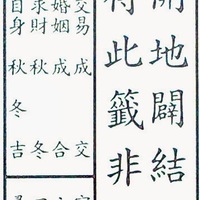 開地闢結
得此籤非
交易成交
婚姻成合
求財秋冬
自身秋冬吉